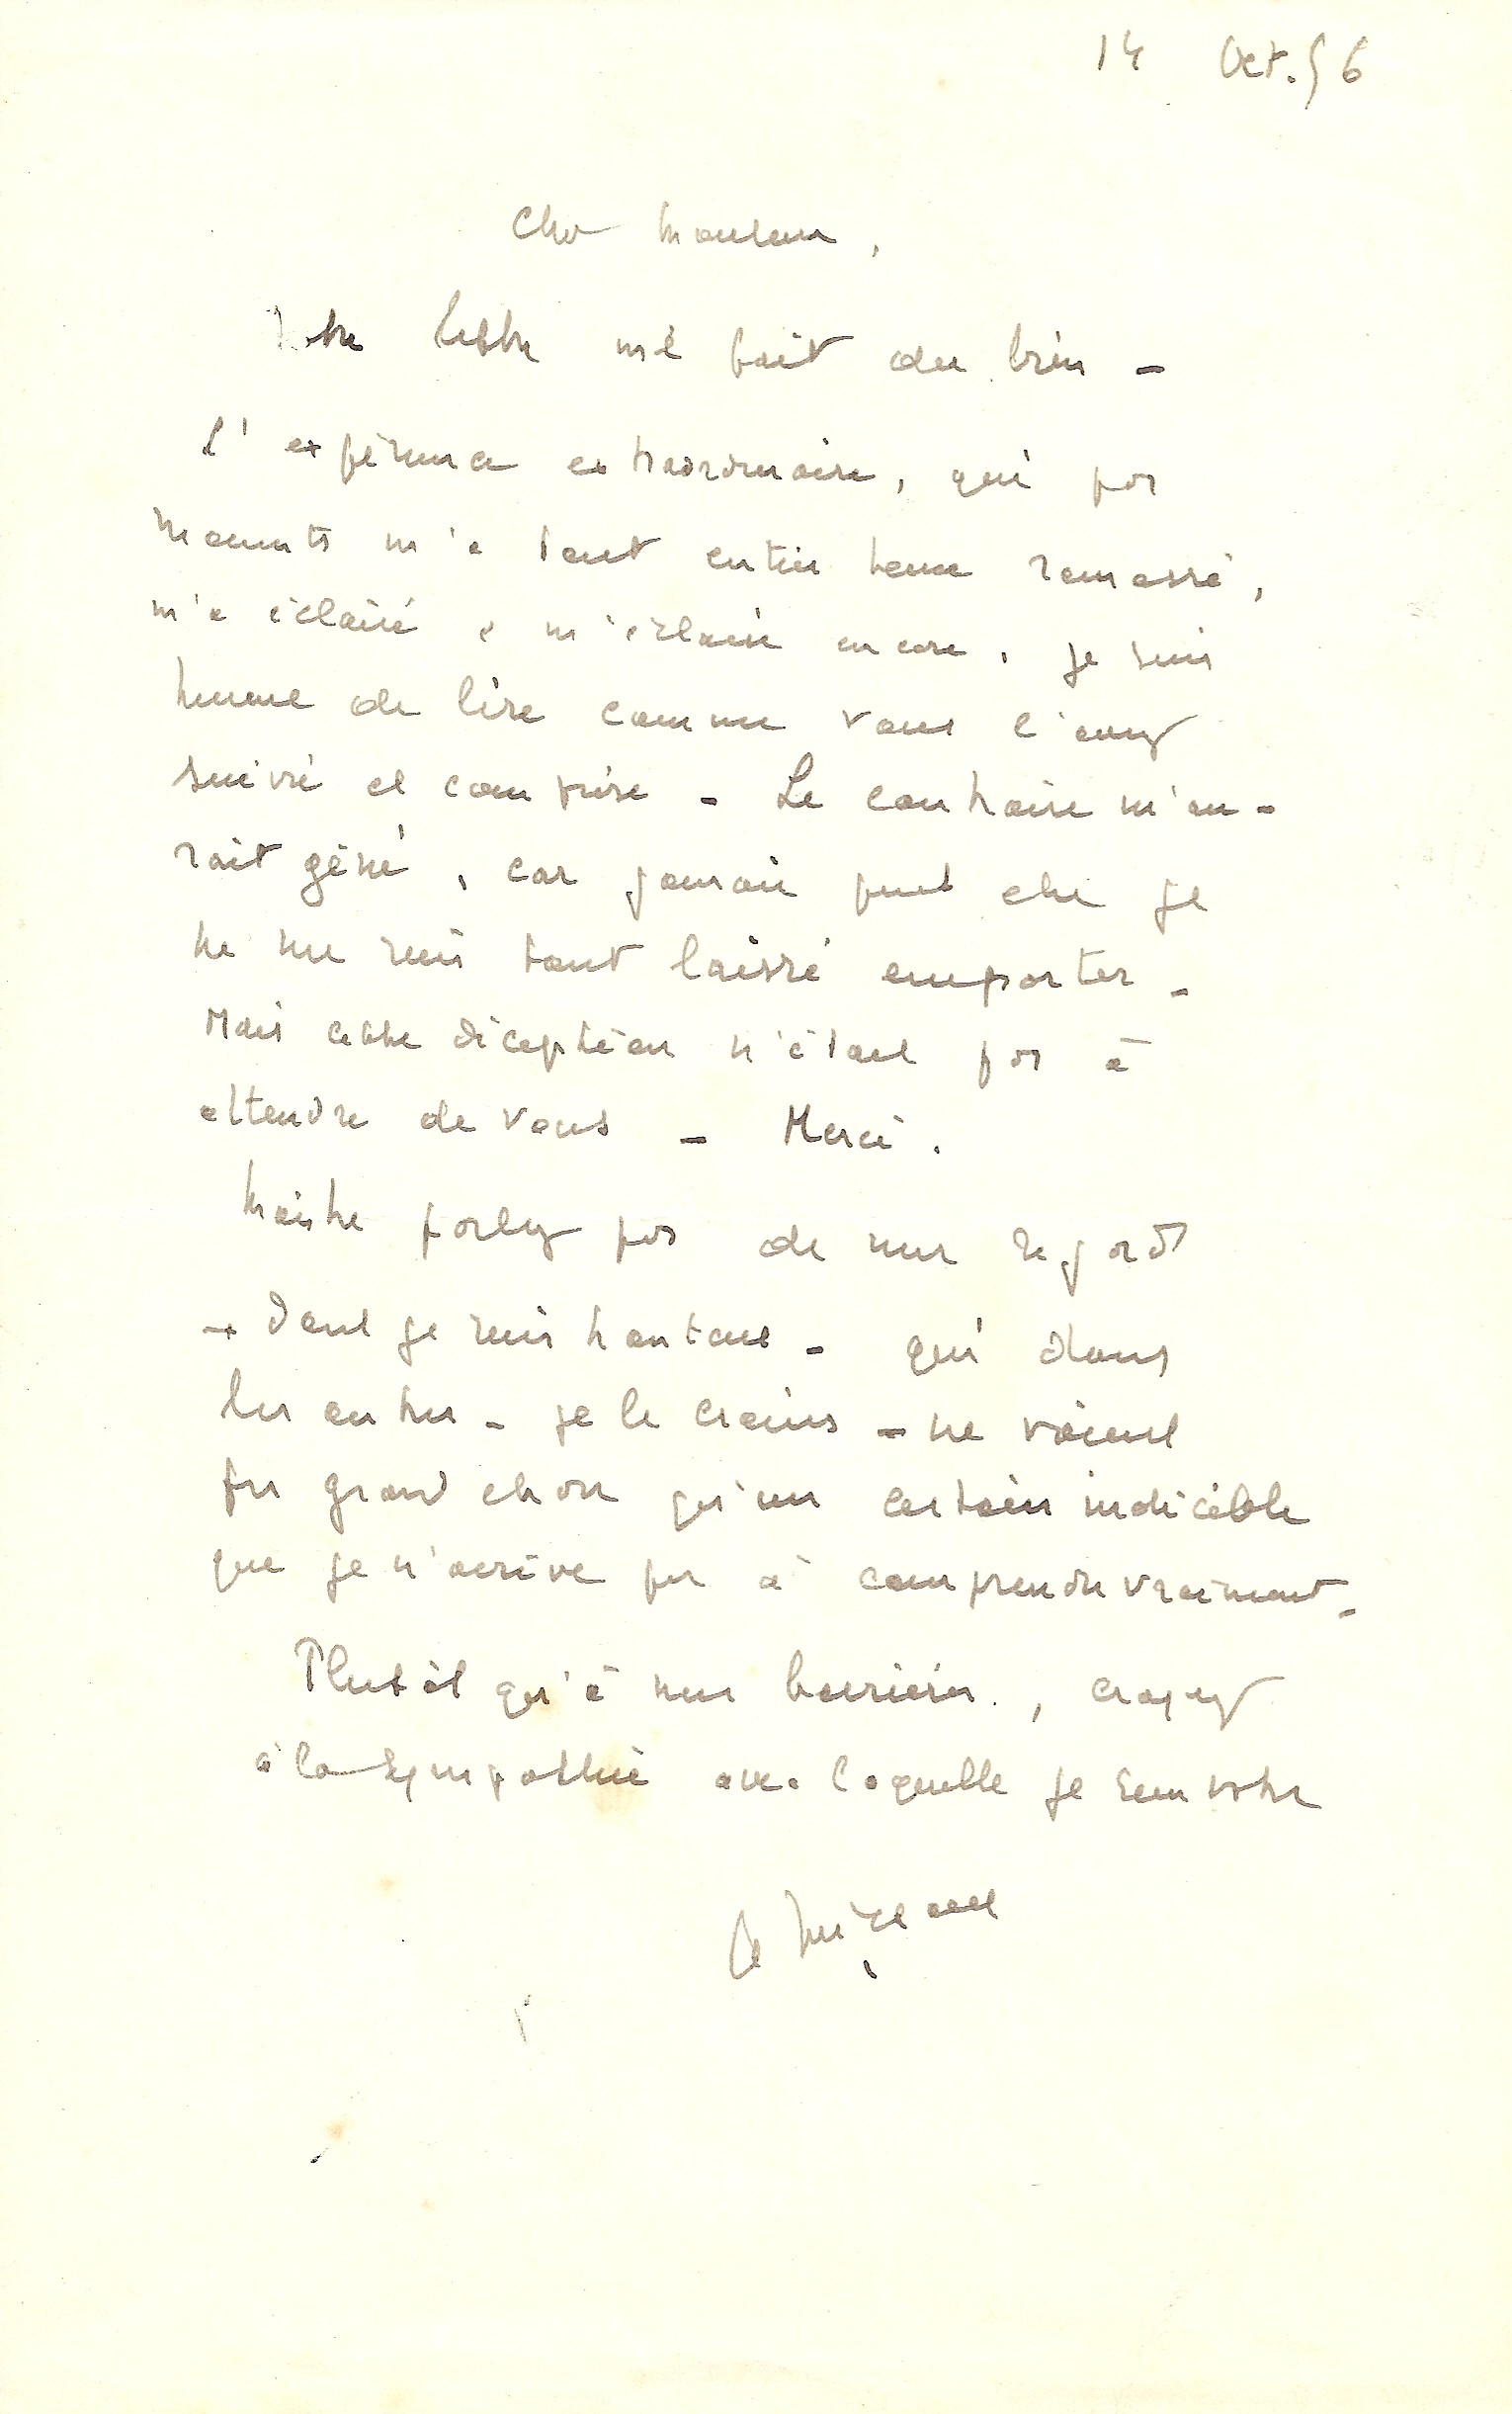 14 Oct. 56
Cher Monsieur,
Votre lettre me fait du bien -
L'expérience extraordinaire, qui par
moments m'a tout entier ramassé,
m'a éclairé & m'éclaire encore. Je suis
heureux de lire comme vous l'avez
suivie et comprise - Le contraire m'au-
rait gêné, car jamais peut être je
ne me suis tant laissé emporter -
Mais cette déception n'était pas à
attendre de vous - Merci.
Mais ne parlez pas de mon regard
- dont je suis honteux - qui dans
les autres - je le crains - ne voient
pas grand chose qu'un certain indicible
que je n'arrive pas à comprendre vraiment -
Plutôt qu'à mon, croyez
à la sympathie avec laquelle je suis votre
H Michaux